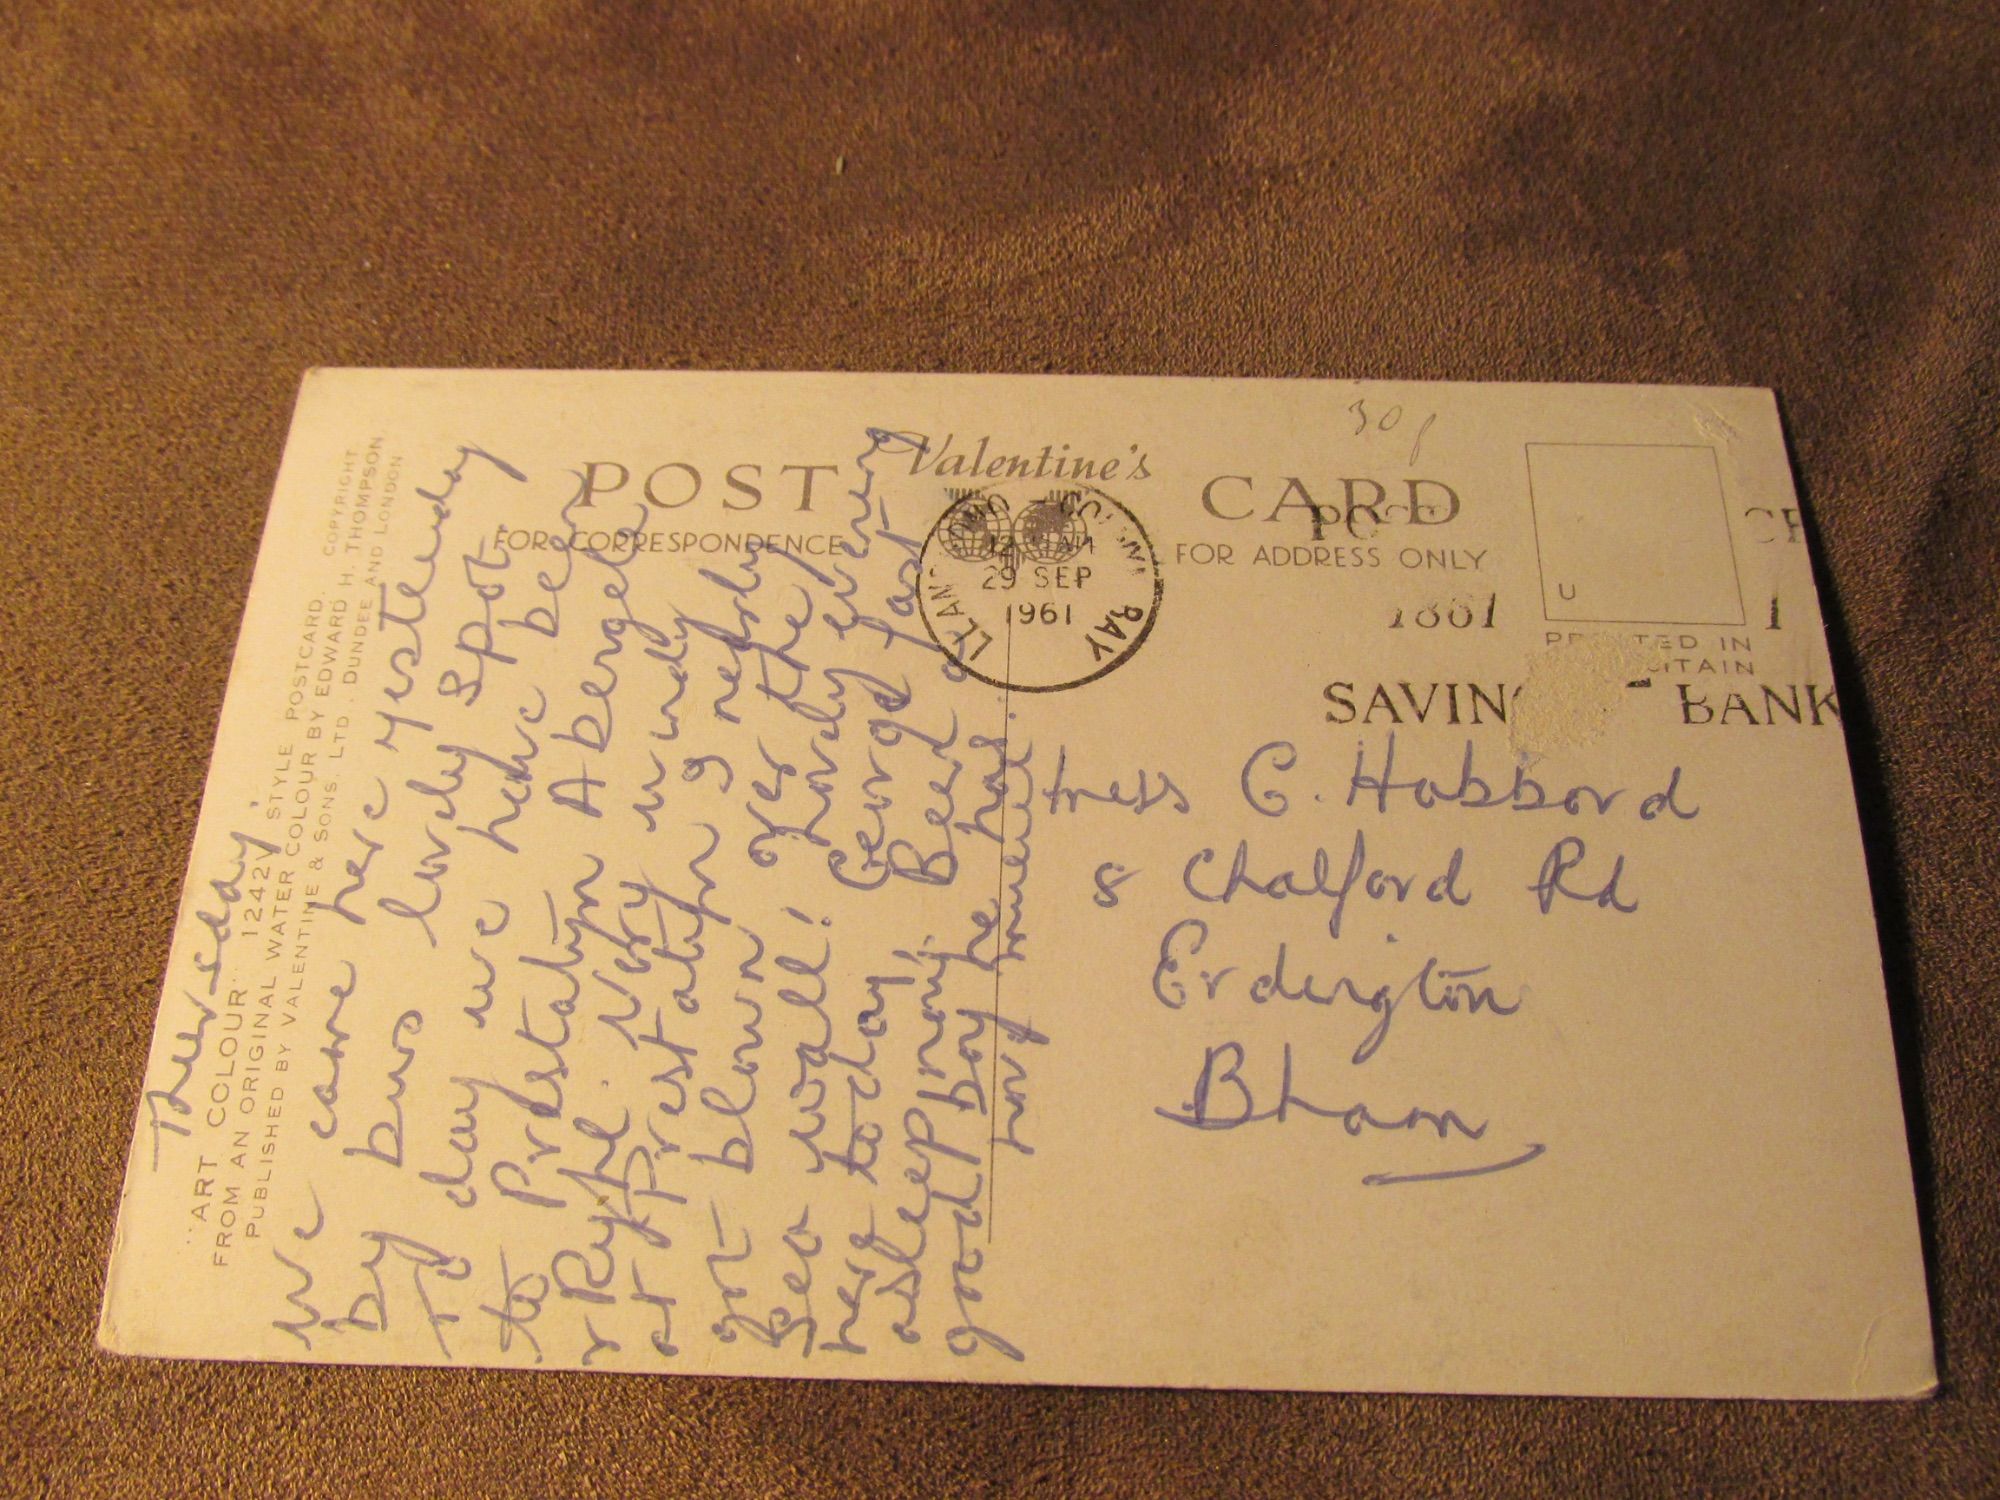 "ART COLOUR" 1242V STYLE POSTCARD.
FROM AN ORIGINAL WATER COLOUR BY EDWARD H. THOMPSON.
PUBLISHED BY VALENTINE & SONS, LTD., DUNDEE AND LONDON
COPYRIGHT
Thursday,
We came here yesterday
by bus lovely spot.
To day we have been
to Prestatyn Abergele
& Rhyl. Very windy
at Prestatyn & nearly
got blown over the
sea wall! Lovely evening
here today, George fast
asleep mom. Been a
good boy he has.
POST
FOR CORRESPONDENCE
Valentine's
CARD
FOR ADDRESS ONLY
30p
12 AM
29 SEP
1961
BAY
POST
1861
SAVIN BANK
U
PRINTED IN
C. Habbord
8 Chalford Rd
Erdington
Bham